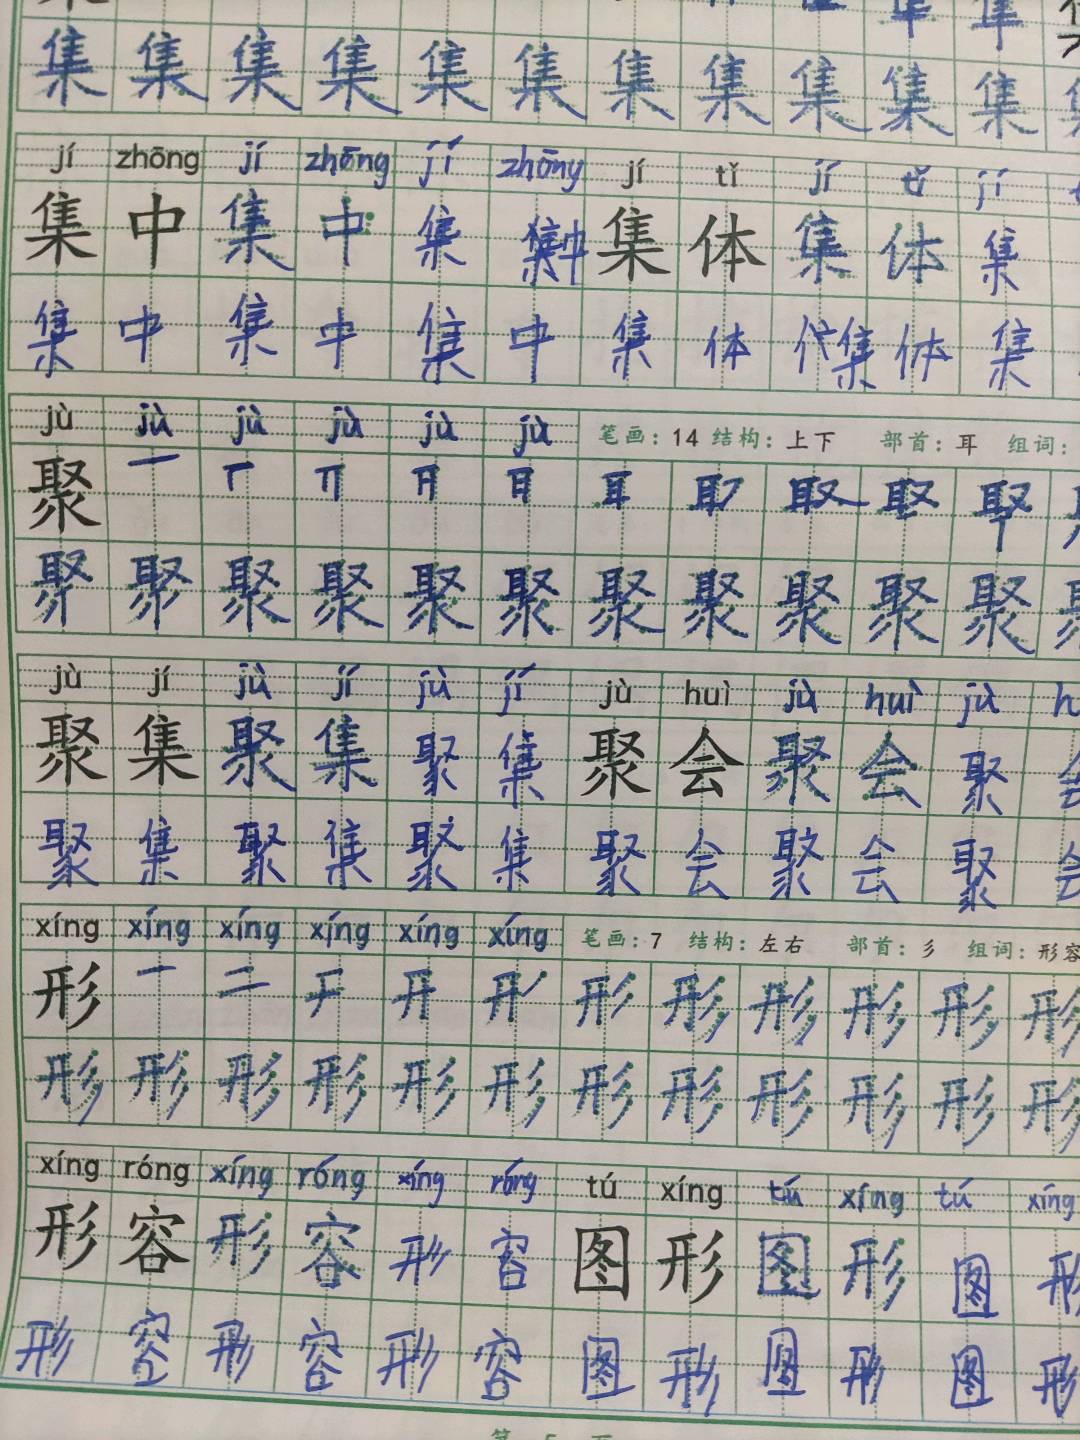 集 集 集 集 集 集 集 集 集 集 集
jí zhōng jí zhōng jí zhōng jí tǐ jí tǐ jí
集 中 集 中 集 集中 集 体 集 体 集
集 中 集 中 集 中 集 体 集 体 集
jù jù jù jù jù jù 笔画：14 结构：上下 部首：耳 组词：
聚 一
聚 聚 聚 聚 聚 聚 聚 聚 聚 聚
jù jí jù jí jù jí jù huì jù huì jù
聚 集 聚 集 聚 集 聚 会 聚 会 聚 会
聚 集 聚 集 聚 集 聚 会 聚 会 聚 会
xíng xíng xíng xíng xíng xíng 笔画：7 结构：左右 部首：彡 组词：形容
形 一 二 开 形 形 形 形 形 形
形 形 形 形 形 形 形 形 形 形 形 形
xíng róng xíng róng xíng róng tú xíng tú xíng tú xíng
形 容 形 容 形 容 图 形 图 形 图 形
形 容 形 容 形 容 图 形 图 形 图 形
第 5 页